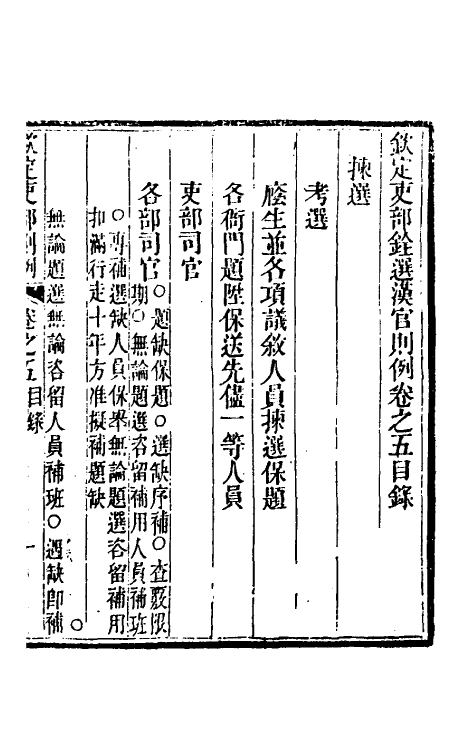 欽定吏部銓選漢官則例卷之五目錄
揀選
考選
廕生並各項議敘人員揀選保題
各衙門題陞保送先儘一等人員
吏部司官
各部司官
○題缺保題○選缺序補○查覈限
期○無論題選咨留補用人員補班
○專補選缺人員保舉無論題選咨留補用
扣滿行走十年方准擬補題缺
○
無論題選無論咨留人員補班○遇缺卽補
欽定吏部則例
卷之五目錄
一